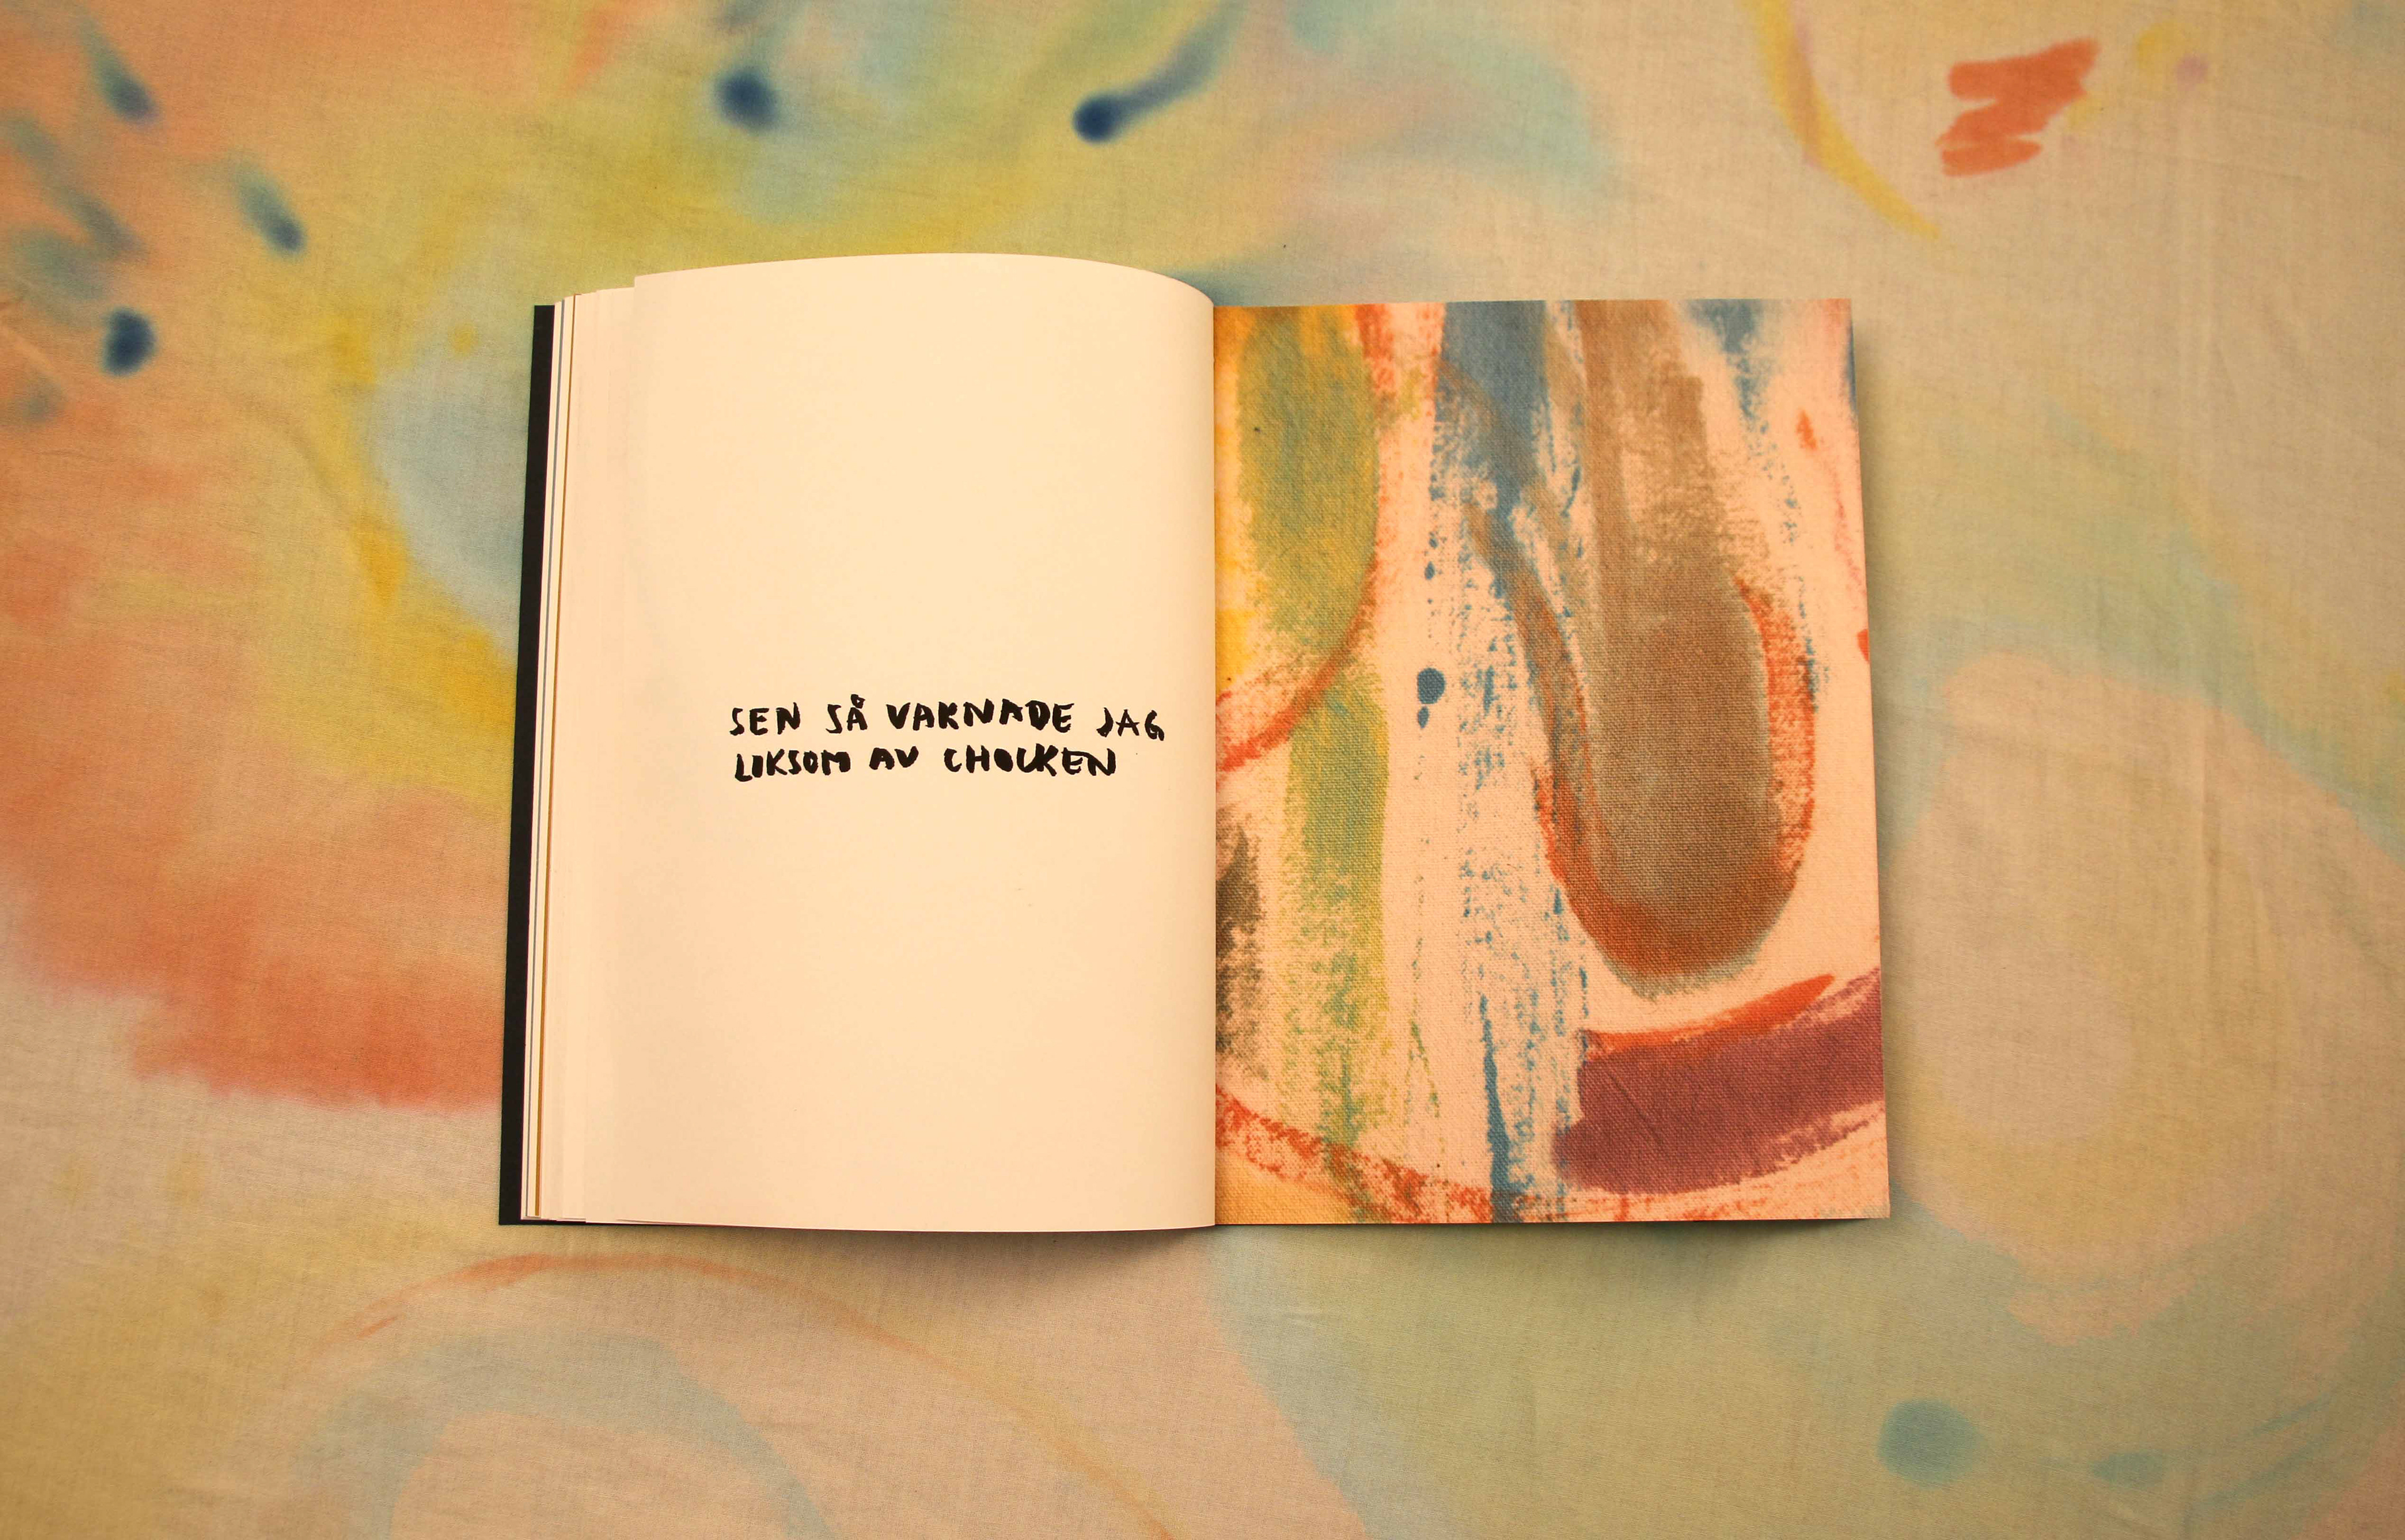 SEN SÅ VAKNADE JAG
LIKSOM AV CHOCKEN